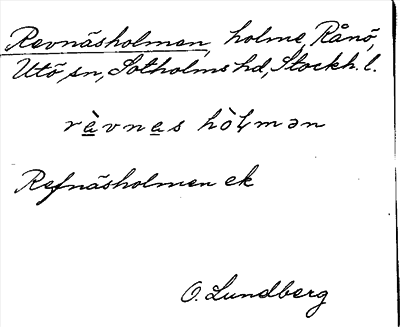 Revnäsholmen, holme, Rånö,
Utö sn, Sotholms hd, Stockh. l.
rὲvnεs hòɫmən
Refnäsholmen ek
O. Lundberg